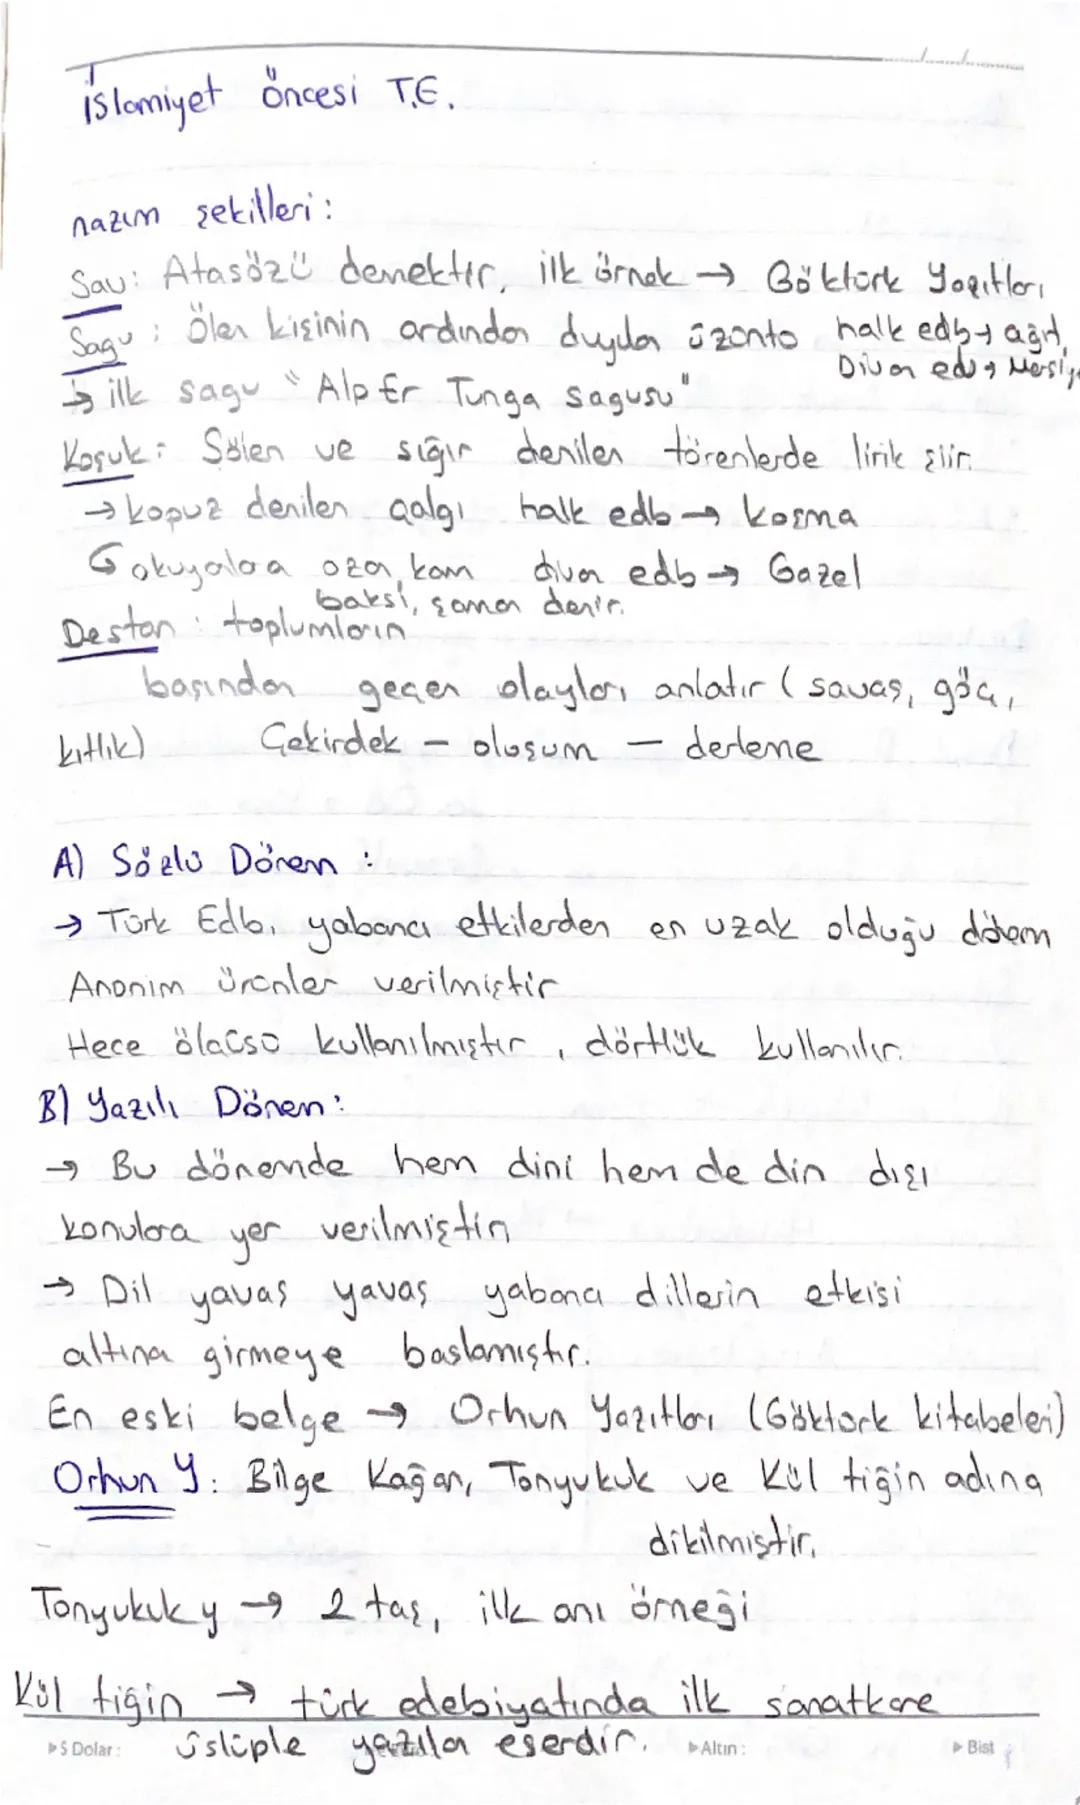 İslamiyet öncesi T.E.
nazım şekilleri:
Sav: Atasözü demektir, ilk örnek → Göktürk Yazıtları
Sagu: Ölen kişinin ardından duyulan üzüntü halk edb→ ağıt,
Divan edb→ Mersiye
↳ ilk sagu "Alp Er Tunga sagusu"
Koşuk: Şölen ve sığır denilen törenlerde lirik şiir.
→ kopuz denilen çalgı halk edb → koşma
↳ okuyanlara ozan, kam divan edb → Gazel
baksı, şaman denir.
Destan: toplumların
başından geçen olayları anlatır (savaş, göç,
kıtlık) Çekirdek – oluşum – derleme
A) Sözlü Dönem:
→ Türk Edb. yabancı etkilerden en uzak olduğu dönem
Anonim ürünler verilmiştir
Hece ölçüsü kullanılmıştır, dörtlük kullanılır.
B) Yazılı Dönem:
→ Bu dönemde hem dini hem de din dışı
konulara yer verilmiştir
→ Dil yavaş yavaş yabancı dillerin etkisi
altına girmeye başlamıştır.
En eski belge → Orhun Yazıtları (Göktürk kitabeleri)
Orhun Y: Bilge Kağan, Tonyukuk ve Kül tiğin adına
dikilmiştir.
Tonyukuk y → 2 taş, ilk anı örneği
Kül tiğin → türk edebiyatında ilk sanatkare
üslüple yazılan eserdir.
▶$ Dolar: ▶Altın: ▶Bist